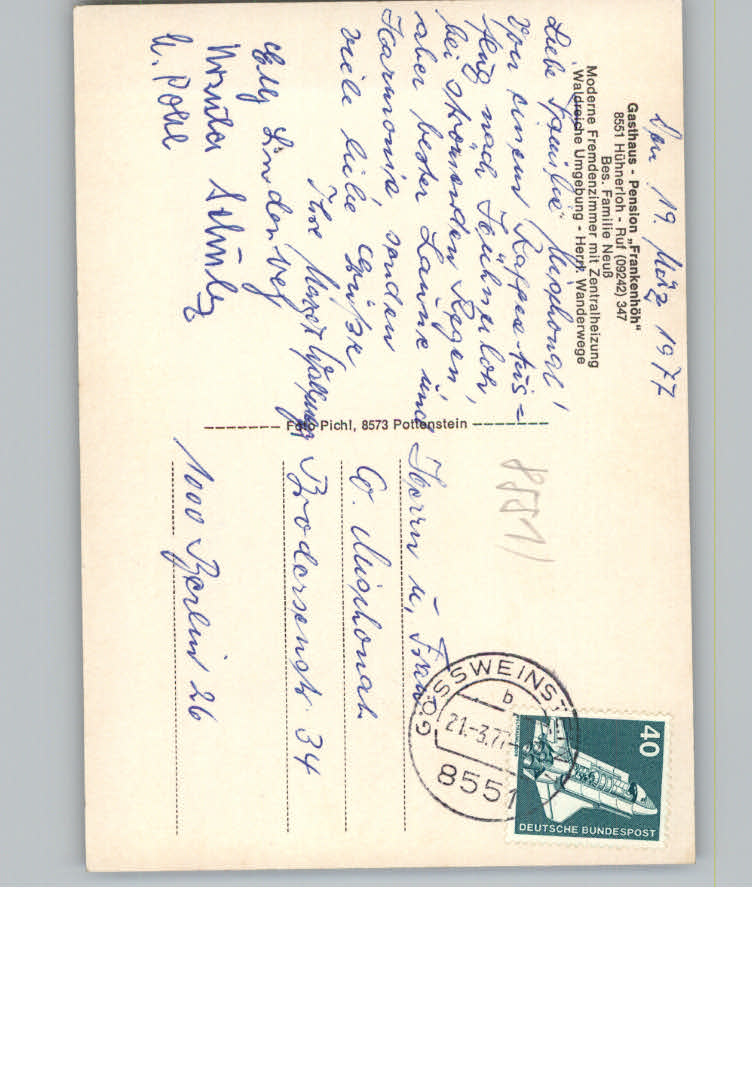 Gasthaus - Pension „Frankenhöh"
8551 Hühnerloh - Ruf (09242) 347
Bes. Familie Neuß
Moderne Fremdenzimmer mit Zentralheizung
Waldreiche Umgebung - Herrl. Wanderwege
Den 19. März 1977
Liebe Familie
Von einem Kaffeeaus=
flug nach Hühnerloh,
bei strömenden Regen,
aber bester Laune und
Harmonie, senden
viele liebe Grüße
Ihre
Elly
Ursula
U. Pohl
Foto Pichl, 8573 Pottenstein
8551
Herrn u. Frau
Brodersenstr. 34
1000 Berlin 26
GÖSSWEINST
b
21.-3.77
8551
40
DEUTSCHE BUNDESPOST